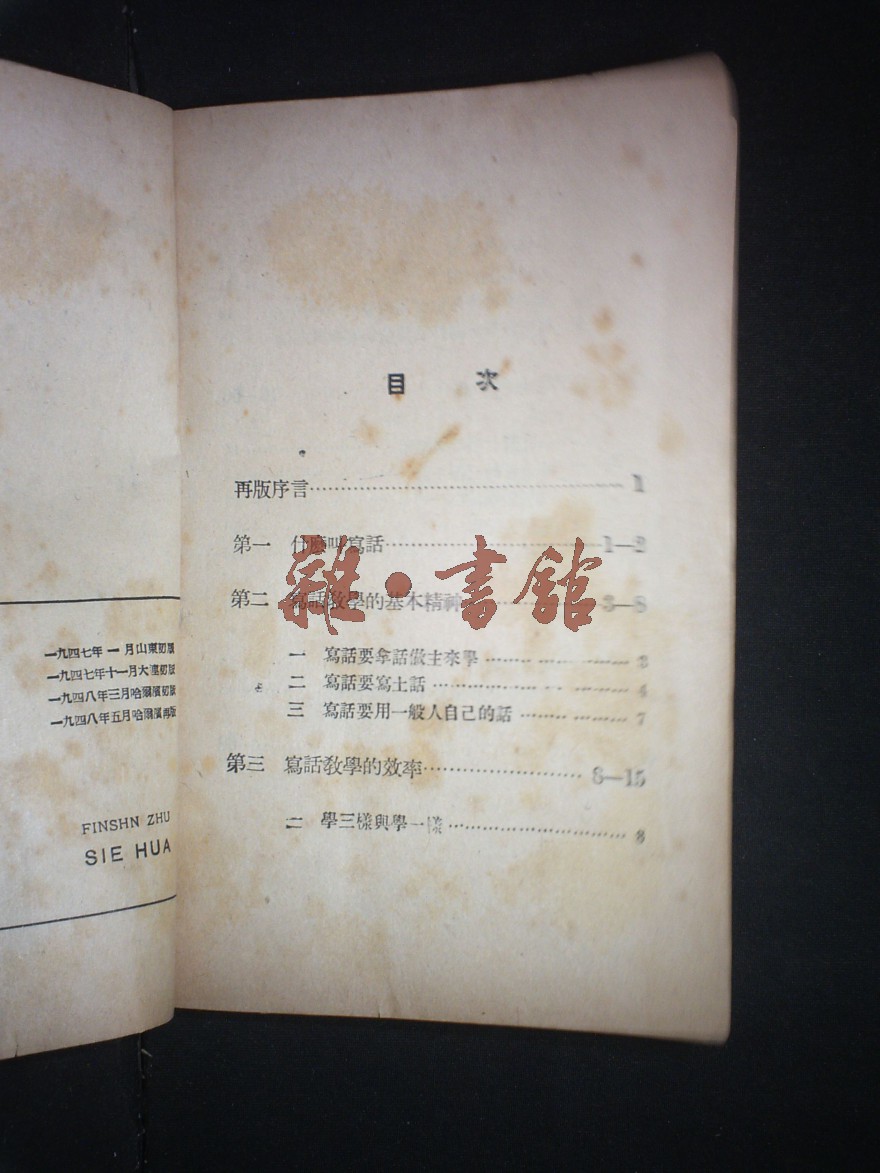 一九四七年一月山東初版
一九四七年十一月大連初版
一九四八年三月哈爾濱初版
一九四八年五月哈爾濱再版
FINSHN ZHU
SIE HUA
目 次
再版序言…………………………………… 1
第一 什麽叫寫話…………………………1—2
第二 寫話敎學的基本精神………………3—8
一 寫話要拿話做主來學…………………3
二 寫話要寫土話…………………………4
三 寫話要用一般人自己的話……………7
第三 寫話敎學的效率……………………8—15
二 學三樣與學一樣………………………8
雜·書館